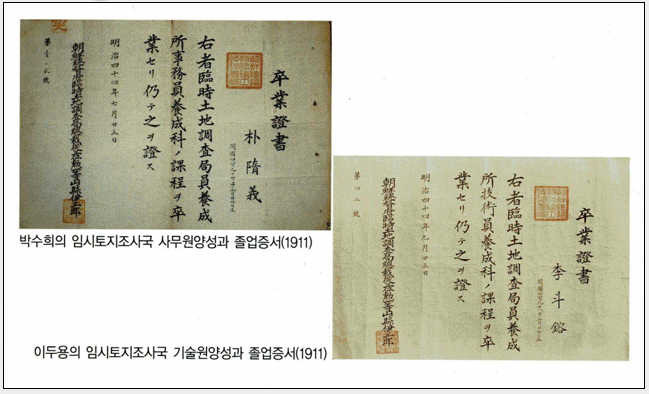 卒業證書
朴隋義
右者臨時土地調査局員養成
所事務員養成科ノ課程ヲ卒
業セリ仍テ之ヲ證ス
明治四十四年七月廿五日
朝鮮總督府臨時土地調査局總裁 山縣伊三郎
박수희의 임시토지조사국 사무원양성과 졸업증서(1911)
卒業證書
李斗鎔
右者臨時土地調査局員養成
所技術員養成科ノ課程ヲ卒
業セリ仍テ之ヲ證ス
明治四十四年九月廿五日
朝鮮總督府臨時土地調査局總裁 山縣伊三郎
第四二號
이두용의 임시토지조사국 기술원양성과 졸업증서(1911)